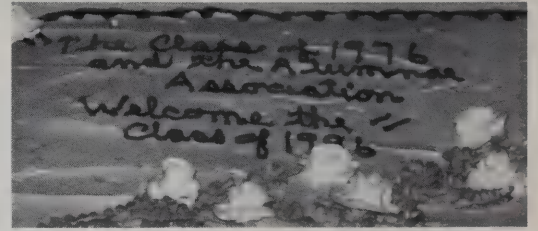 The Class of 1976
and the Alumnae
Association
Welcome the
Class of 1996